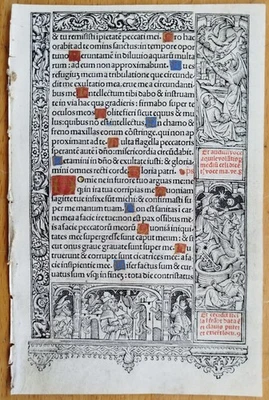 & tu remisisti ipietatē peccati mei. Pro hac
orabit ad te omīs sanctus: in tempore opor
tuno. Verūtamē in diluuio aquarū multa
rum: ad eum non approximabunt. Tu es
refugiū meum a tribulatione que circunde
dit me exultatio mea. erue me a circundāti
bus me. Intellectum tibi dabo & instruam
te in via hac qua gradieris: firmabo super te
oculos meos. Nolite fieri sicut equus & mu
lus: quibus nō est intellectus. In chamo &
freno maxillas eorum cōstringe. qui non ap
proximant ad te. Multa flagella peccatoris
sperantē autē ī dño: misericordia circūdabit.
Letamini in dño & exultate iusti: & gloria
mini omnes recti corde. Gloria patri.
Domine ne in furore tuo arguas me:
neque in ira tua corripias me. Quoniam
sagitte tue infixe sunt michi: & confirmasti su
per me manum tuam. Non est sanitas ī car
ne mea a facie ire tue: non est pax ossibus me
is a facie peccatorū meorū. Quoniā iniqui
tates mee supergresse sunt caput meum: & si
cut onus graue grauate sunt super me. Pu
truerunt & corrupte sunt cicatrices mee: a fa
cie insipientie mee. Miser factus sum & cur
uatus sum vsqȝ in finē: tota die contristatus